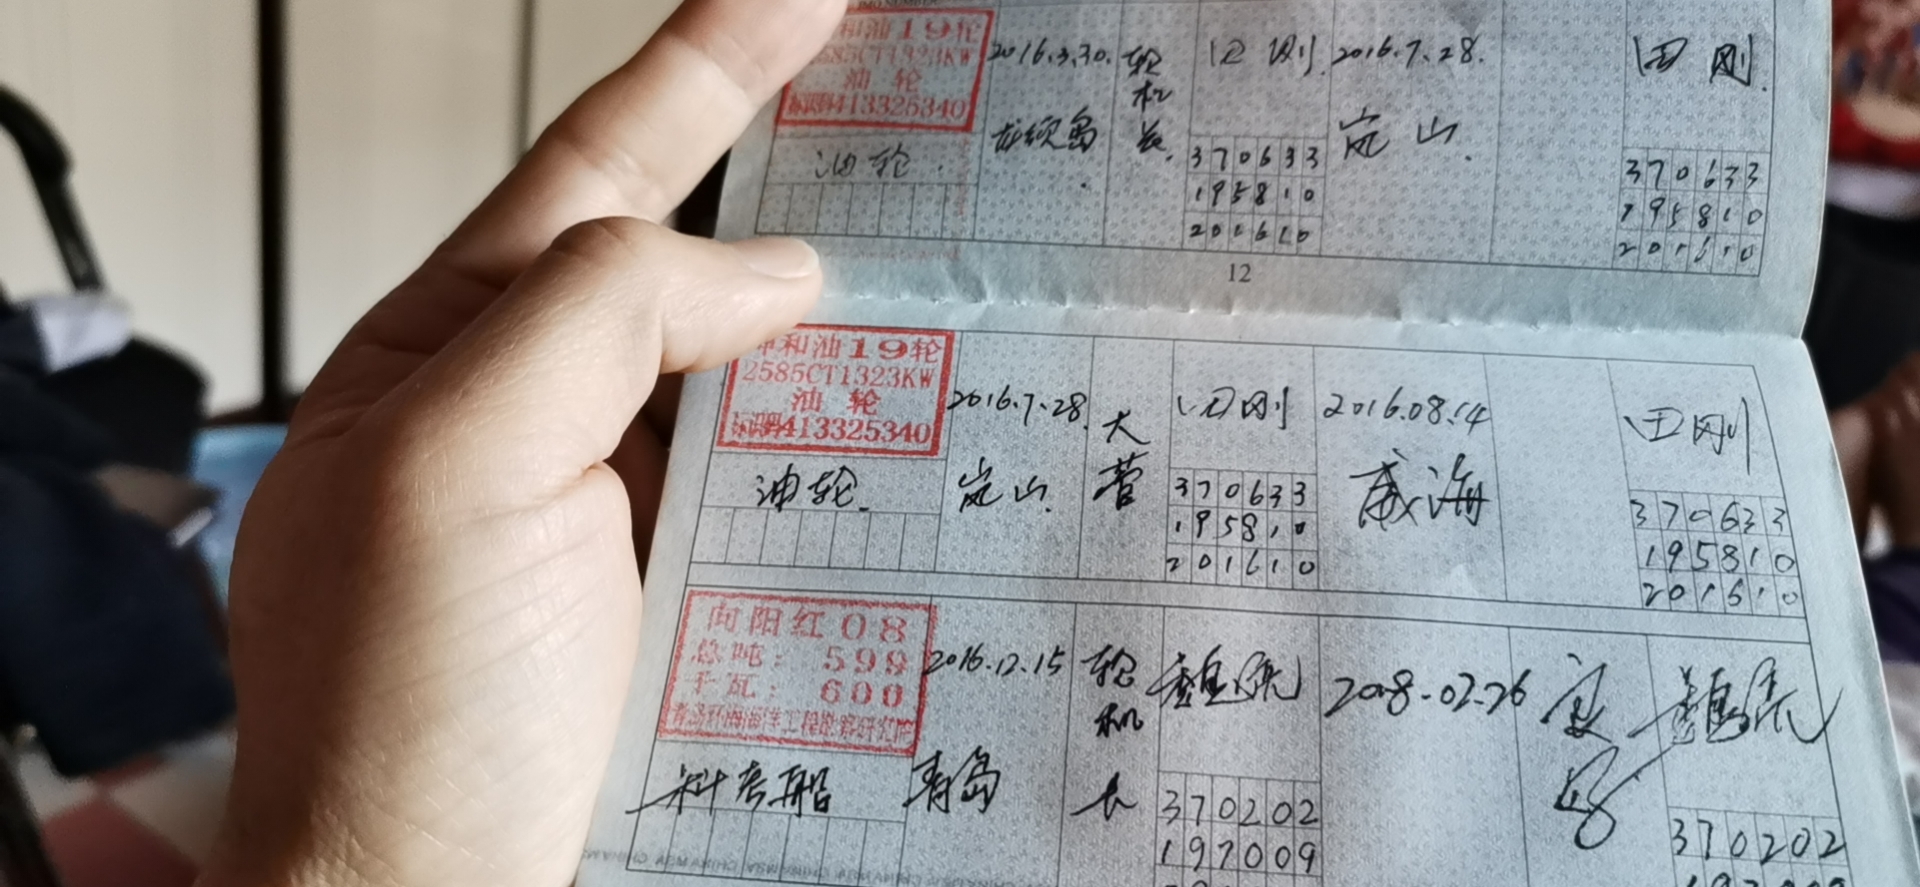 和油19轮
2585CT1323KW
油 轮
413325340
油轮.
2016.3.30.
轮机长.
田 刚.
370633
195810
201610
2016.7.28.
岚 山.
田 刚.
370633
195810
201610
12
和油19轮
2585CT1323KW
油 轮
413325340
油轮.
2016.7.28.
岚山.
大管
田刚
370633
195810
201610
2016.08.14
威海
田刚
370633
195810
201610
向阳红08
总吨: 599
千瓦: 600
科考船
2016.12.15
青岛
轮机长
370202
197009
2018-02-26
370202